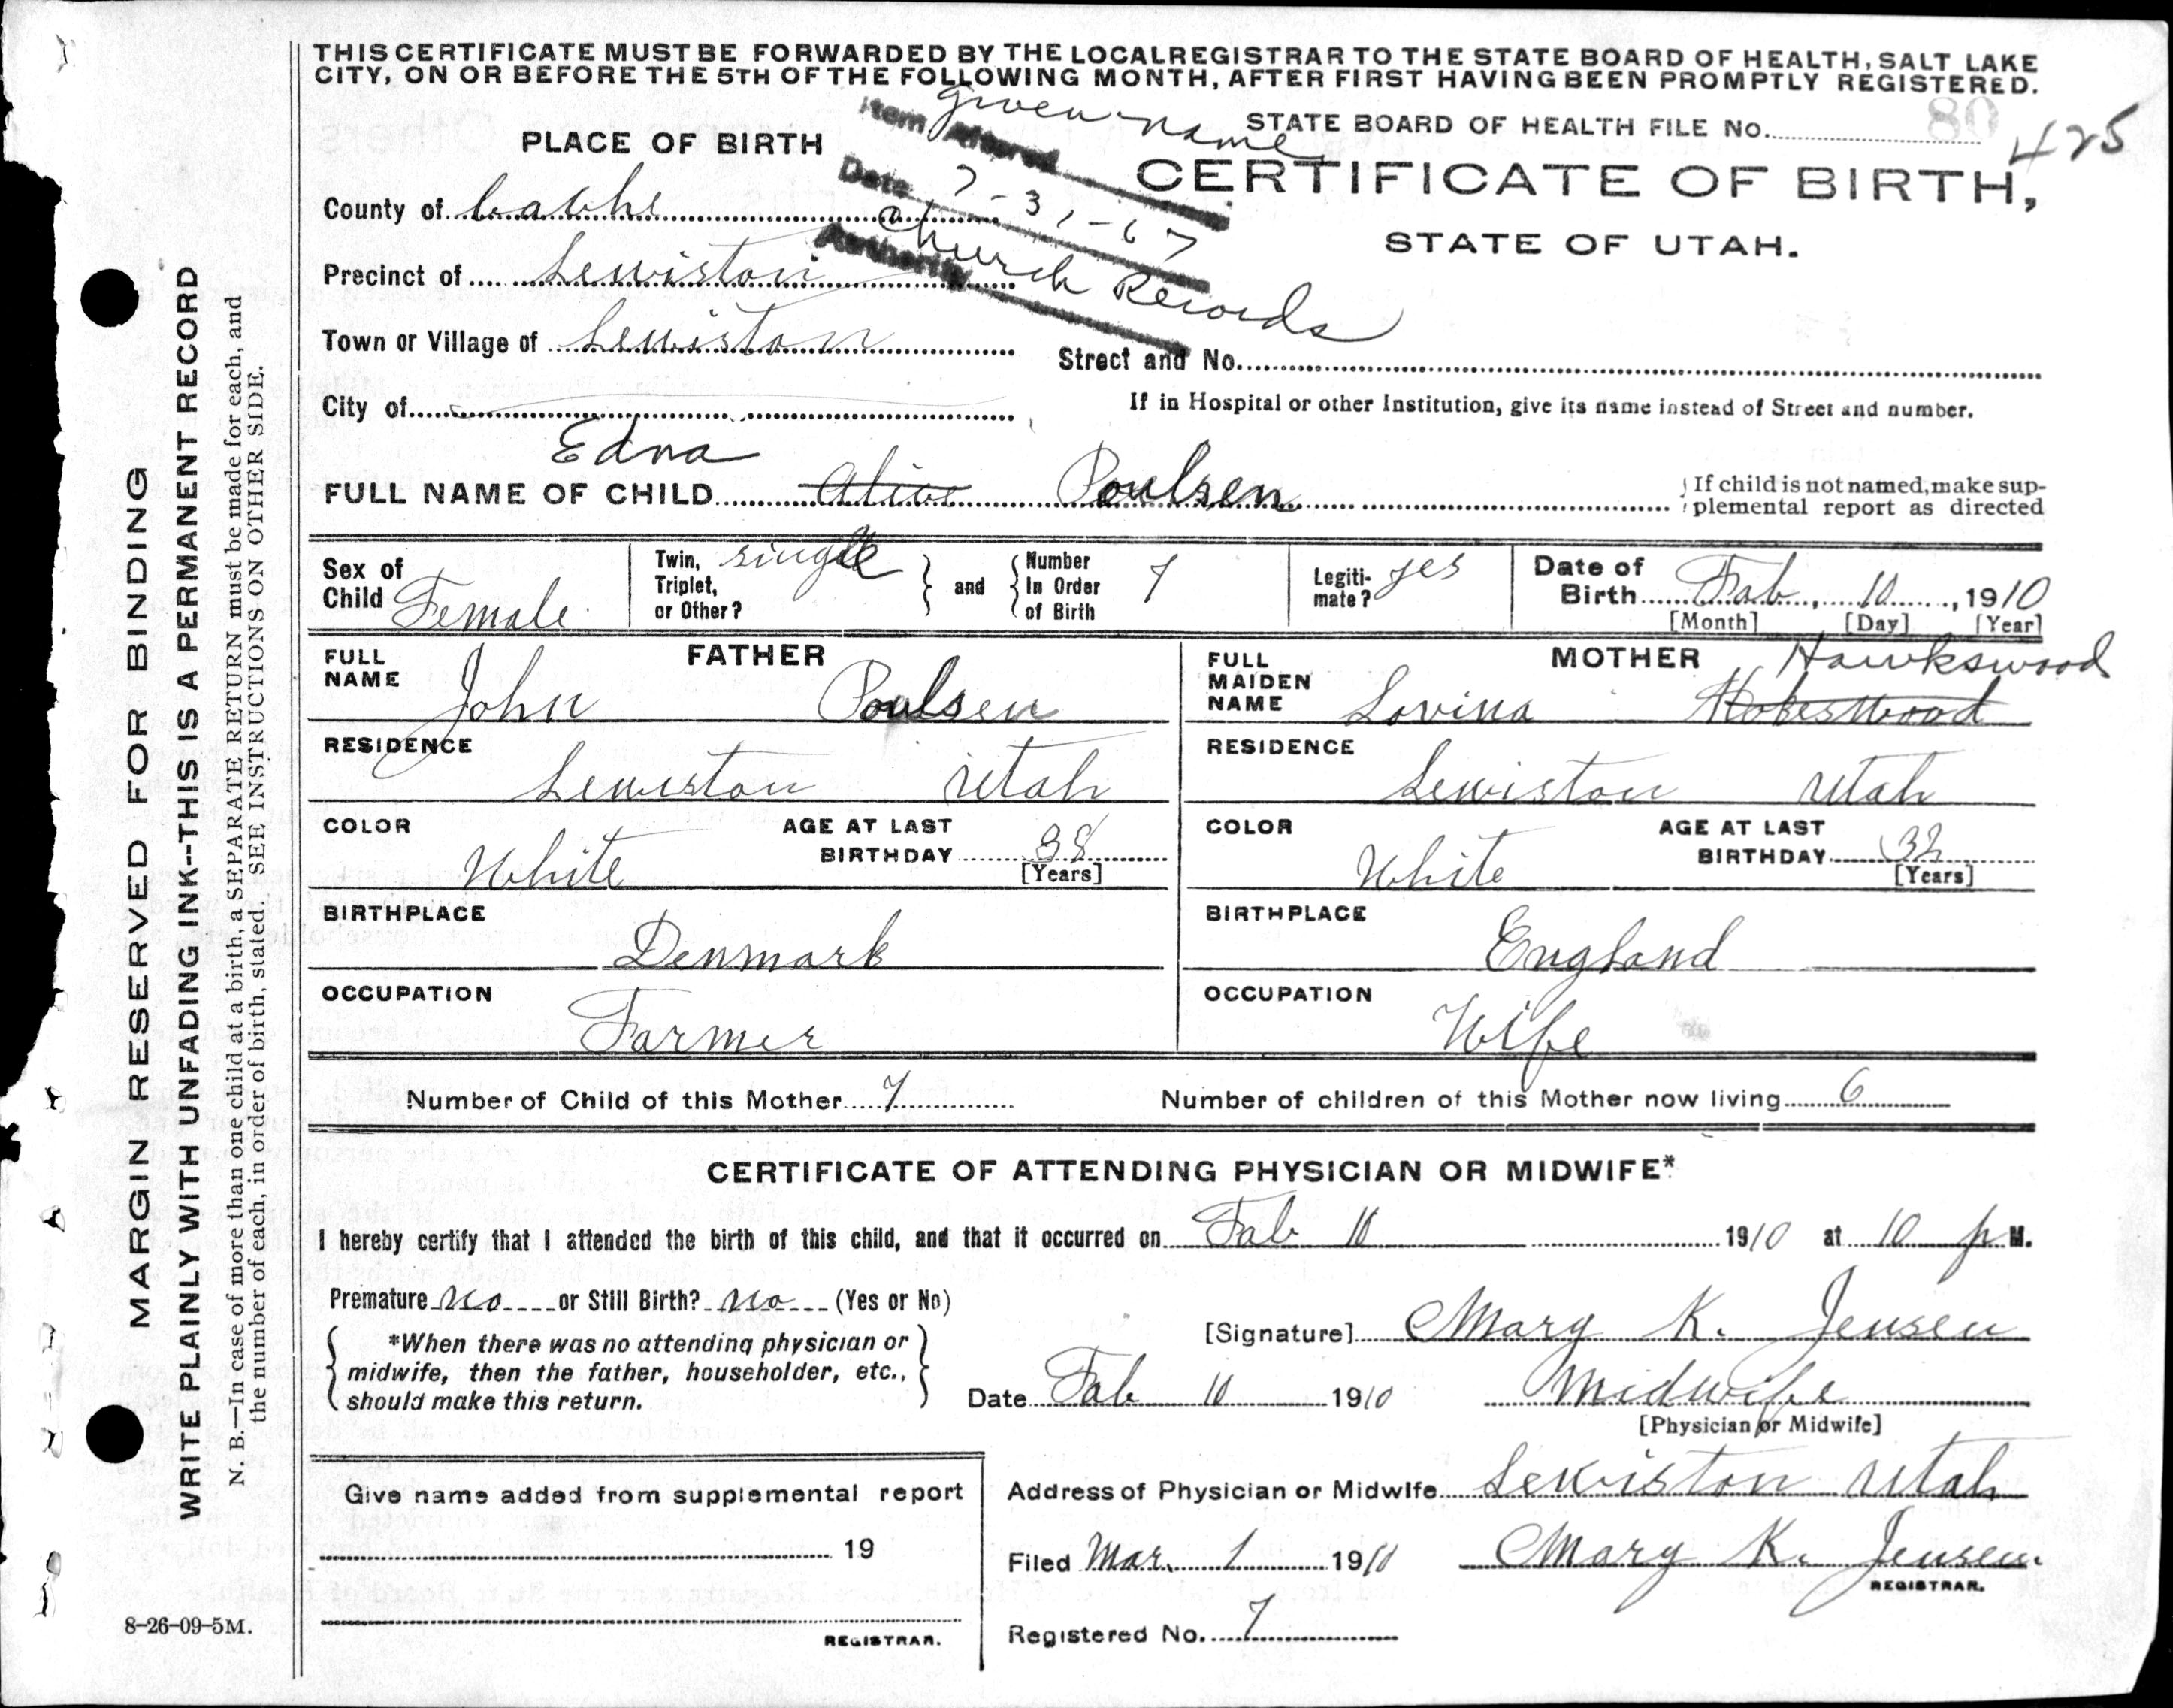 THIS CERTIFICATE MUST BE FORWARDED BY THE LOCAL REGISTRAR TO THE STATE BOARD OF HEALTH, SALT LAKE
CITY, ON OR BEFORE THE 5TH OF THE FOLLOWING MONTH, AFTER FIRST HAVING BEEN PROMPTLY REGISTERED.
STATE BOARD OF HEALTH FILE No. 80 425
Item Altered given name
Date 7-31-67
Authority Church Records
PLACE OF BIRTH
CERTIFICATE OF BIRTH,
STATE OF UTAH.
County of Cache
Precinct of Lewiston
Town or Village of Lewiston
Street and No.
City of
If in Hospital or other Institution, give its name instead of Street and number.
Edna
FULL NAME OF CHILD Alive Poulsen
If child is not named, make sup-
plemental report as directed
Sex of Child Female
Twin, Triplet, or Other? single
and
Number In Order of Birth 7
Legiti-mate? yes
Date of Birth Fab, 10, 1910
[Month] [Day] [Year]
FATHER
FULL NAME John Poulsen
RESIDENCE Lewiston Utah
COLOR White
AGE AT LAST BIRTHDAY 38
[Years]
BIRTHPLACE Denmark
OCCUPATION Farmer
MOTHER
Hawkswood
FULL MAIDEN NAME Lovina Hokeswood
RESIDENCE Lewiston Utah
COLOR White
AGE AT LAST BIRTHDAY 32
[Years]
BIRTHPLACE England
OCCUPATION Wife
Number of Child of this Mother 7 Number of children of this Mother now living 6
CERTIFICATE OF ATTENDING PHYSICIAN OR MIDWIFE*
I hereby certify that I attended the birth of this child, and that it occurred on Fab 10 1910 at 10 p M.
Premature no or Still Birth? no (Yes or No)
*When there was no attending physician or
midwife, then the father, householder, etc.,
should make this return.
[Signature] Mary K. Jensen
Date Fab 10 1910 Midwife
[Physician or Midwife]
Give name added from supplemental report
19
REGISTRAR.
Address of Physician or Midwife Lewiston Utah
Filed Mar. 1 1910 Mary K. Jensen
REGISTRAR.
Registered No. 7
8-26-09-5M.
MARGIN RESERVED FOR BINDING
WRITE PLAINLY WITH UNFADING INK--THIS IS A PERMANENT RECORD
N. B.—In case of more than one child at a birth, a SEPARATE RETURN must be made for each, and
the number of each, in order of birth, stated. SEE INSTRUCTIONS ON OTHER SIDE.